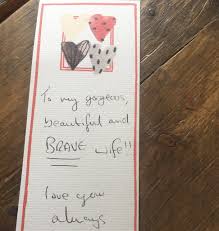 To my gorgeous,
beautiful and
BRAVE wife!!
love you
always